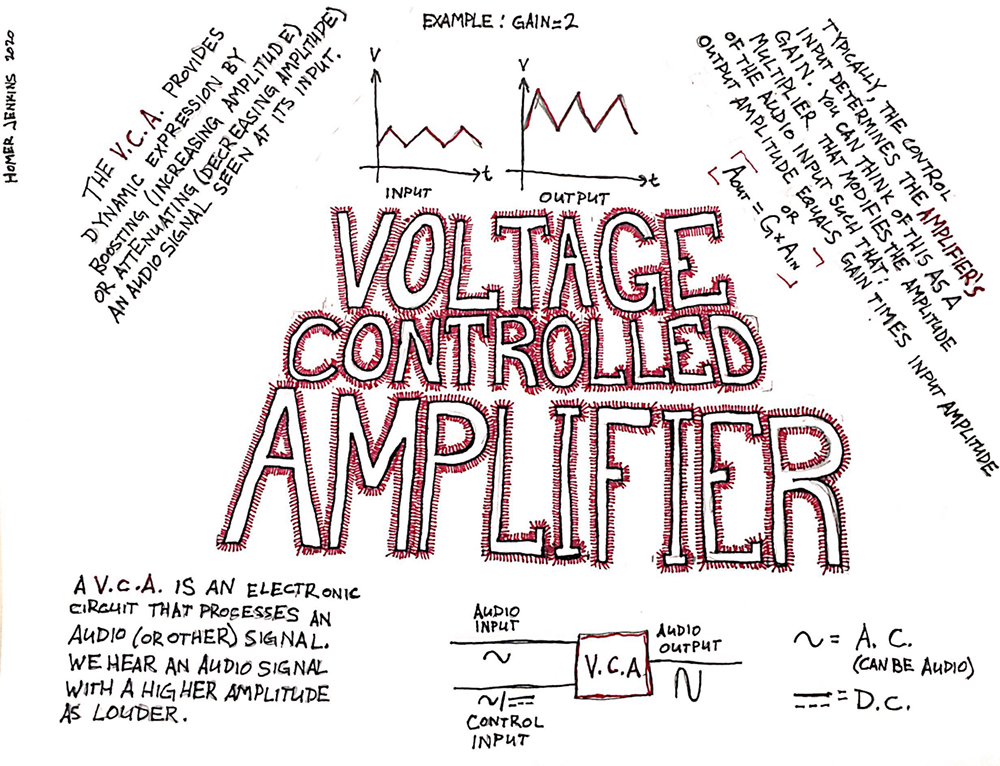 HOMER JENKINS 2020
THE V.C.A. PROVIDES
DYNAMIC EXPRESSION BY
BOOSTING (INCREASING AMPLITUDE)
OR ATTENUATING (DECREASING AMPLITUDE)
AN AUDIO SIGNAL SEEN AT ITS INPUT.
EXAMPLE: GAIN=2
V
t
INPUT
V
t
OUTPUT
TYPICALLY, THE CONTROL
INPUT DETERMINES THE AMPLIFIER'S
GAIN. YOU CAN THINK OF THIS AS A
MULTIPLIER THAT MODIFIES THE AMPLITUDE
OF THE AUDIO INPUT SUCH THAT:
OUTPUT AMPLITUDE EQUALS GAIN TIMES INPUT AMPLITUDE
OR
[AOUT = G×AIN]
VOLTAGE
CONTROLLED
AMPLIFIER
A V.C.A. IS AN ELECTRONIC
CIRCUIT THAT PROCESSES AN
AUDIO (OR OTHER) SIGNAL.
WE HEAR AN AUDIO SIGNAL
WITH A HIGHER AMPLITUDE
AS LOUDER.
AUDIO
INPUT
∿
∿/⎓
CONTROL
INPUT
V.C.A
AUDIO
OUTPUT
∿
∿ = A.C.
(CAN BE AUDIO)
⎓ = D.C.